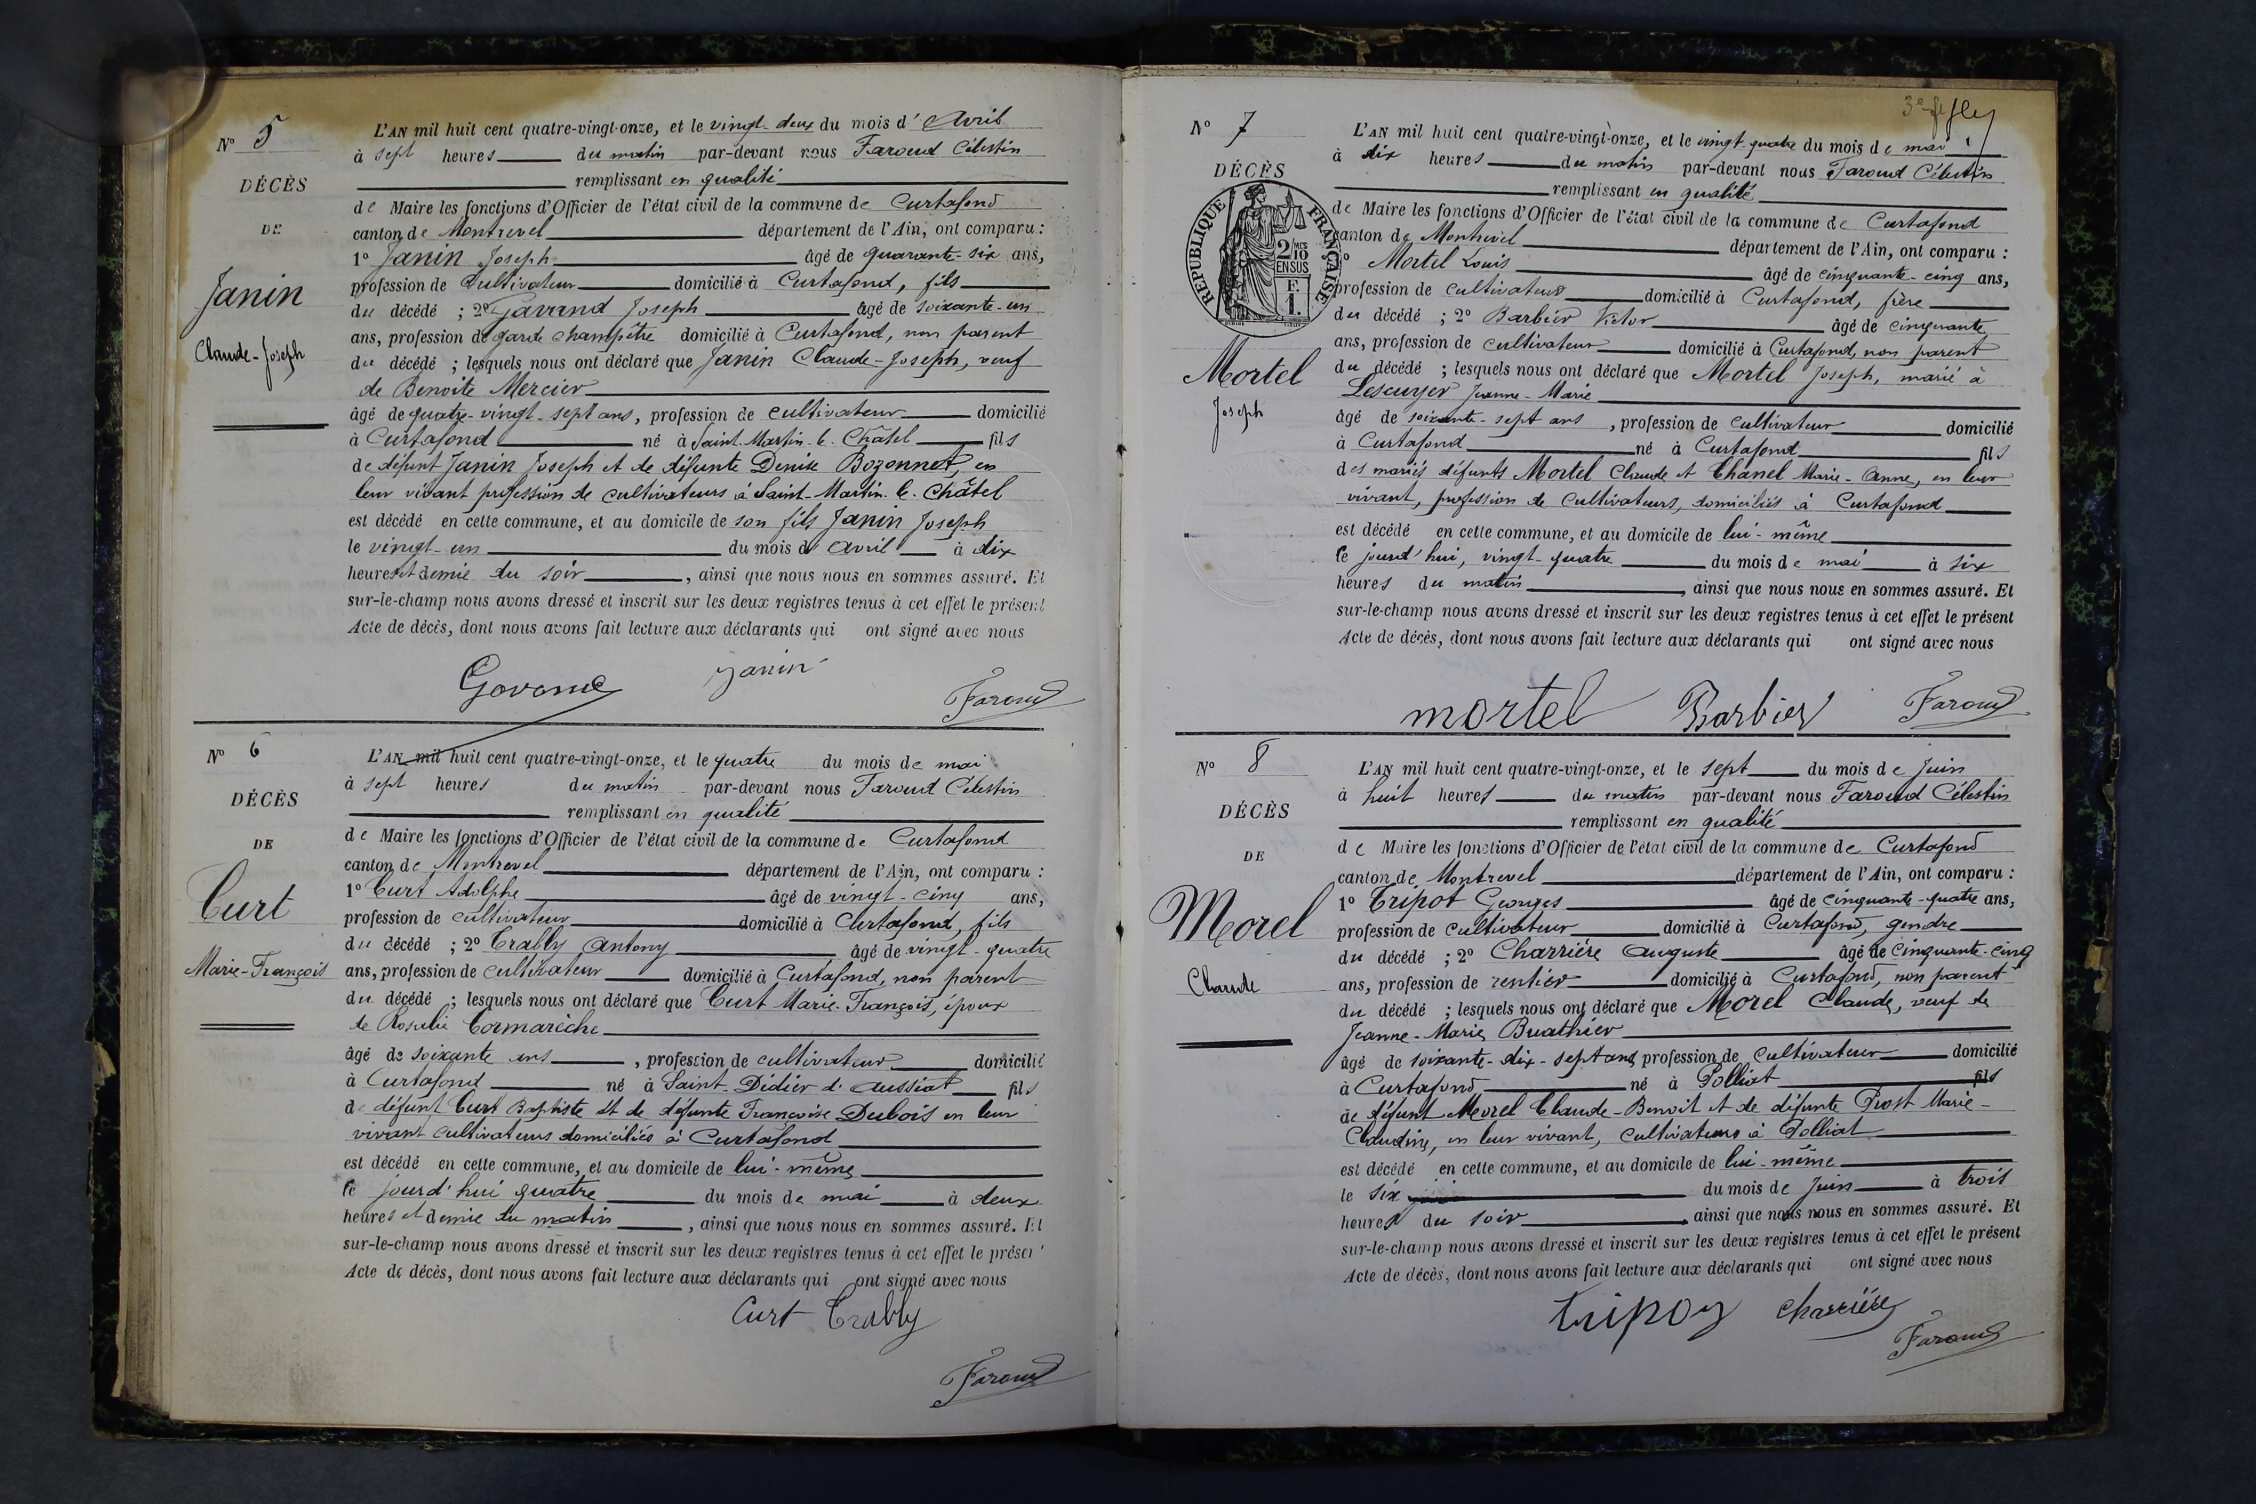 N° 5
DÉCÈS
DE
Janin
Claude-Joseph
L'AN mil huit cent quatre-vingt-onze, et le vingt-deux du mois d'Avril
à sept heures du matin par-devant nous Faroud Célestin
remplissant en qualité
de Maire les fonctions d'Officier de l'état civil de la commune de Curtafond
canton de Montrevel département de l'Ain, ont comparu :
1° Janin Joseph âgé de quarante-six ans,
profession de Cultivateur domicilié à Curtafond, fils
du décédé ; 2° Gavand Joseph âgé de soixante-un
ans, profession de garde champêtre domicilié à Curtafond, non parent
du décédé ; lesquels nous ont déclaré que Janin Claude-Joseph, veuf
de Benoite Mercier
âgé de quatre-vingt-sept ans, profession de cultivateur domicilié
à Curtafond né à Saint-Martin-le-Châtel fils
de défunt Janin Joseph et de défunte Denise Bozonnet, en
leur vivant profession de cultivateurs à Saint-Martin-le-Châtel
est décédé en cette commune, et au domicile de son fils Janin Joseph
le vingt-un du mois de avril à dix
heures et demie du soir, ainsi que nous nous en sommes assuré. Et
sur-le-champ nous avons dressé et inscrit sur les deux registres tenus à cet effet le présent
Acte de décès, dont nous avons fait lecture aux déclarants qui ont signé avec nous
Janin
Faroud
N° 6
DÉCÈS
DE
Curt
Marie-François
L'AN mil huit cent quatre-vingt-onze, et le quatre du mois de mai
à sept heures du matin par-devant nous Faroud Célestin
remplissant en qualité
de Maire les fonctions d'Officier de l'état civil de la commune de Curtafond
canton de Montrevel département de l'Ain, ont comparu :
1° Curt Adolphe âgé de vingt-cinq ans,
profession de cultivateur domicilié à Curtafond, fils
du décédé ; 2° Crably Antony âgé de vingt-quatre
ans, profession de cultivateur domicilié à Curtafond, non parent
du décédé ; lesquels nous ont déclaré que Curt Marie-François, époux
de Rosalie Cormarèche
âgé de soixante ans, profession de cultivateur domicilié
à Curtafond né à Saint-Didier d'Aussiat fils
de défunt Curt Baptiste et de défunte Françoise Dubois en leur
vivant cultivateurs domiciliés à Curtafond
est décédé en cette commune, et au domicile de lui-même
le jourd'hui quatre du mois de mai à deux
heures et demie du matin, ainsi que nous nous en sommes assuré. Et
sur-le-champ nous avons dressé et inscrit sur les deux registres tenus à cet effet le présen
Acte de décès, dont nous avons fait lecture aux déclarants qui ont signé avec nous
Curt Crably
Faroud
N° 7
DÉCÈS
RÉPUBLIQUE FRANÇAISE
2/10
EN SUS
F.
1.
Mortel
Joseph
L'AN mil huit cent quatre-vingt-onze, et le vingt-quatre du mois de mai
à dix heures du matin par-devant nous Faroud Célestin
remplissant en qualité
de Maire les fonctions d'Officier de l'état civil de la commune de Curtafond
canton de Montrevel département de l'Ain, ont comparu :
Mortel Louis âgé de cinquante-cinq ans,
profession de cultivateur domicilié à Curtafond, frère
du décédé ; 2° Barbier Victor âgé de cinquante
ans, profession de cultivateur domicilié à Curtafond, non parent
du décédé ; lesquels nous ont déclaré que Mortel Joseph, marié à
Lescuyer Jeanne-Marie
âgé de soixante-sept ans, profession de cultivateur domicilié
à Curtafond né à Curtafond fils
des mariés défunts Mortel Claude et Chanel Marie-Anne, en leur
vivant, profession de cultivateurs, domiciliés à Curtafond
est décédé en cette commune, et au domicile de lui-même
le jourd'hui, vingt-quatre du mois de mai à six
heures du matin, ainsi que nous nous en sommes assuré. Et
sur-le-champ nous avons dressé et inscrit sur les deux registres tenus à cet effet le présent
Acte de décès, dont nous avons fait lecture aux déclarants qui ont signé avec nous
mortel Barbier Faroud
N° 8
DÉCÈS
DE
Morel
Claude
L'AN mil huit cent quatre-vingt-onze, et le sept du mois de juin
à huit heures du matin par-devant nous Faroud Célestin
remplissant en qualité
de Maire les fonctions d'Officier de l'état civil de la commune de Curtafond
canton de Montrevel département de l'Ain, ont comparu :
1° Tripoz Georges âgé de cinquante-quatre ans,
profession de cultivateur domicilié à Curtafond, gendre
du décédé ; 2° Charrière Auguste âgé de cinquante-cinq
ans, profession de rentier domicilié à Curtafond, non parent
du décédé ; lesquels nous ont déclaré que Morel Claude, veuf de
Jeanne-Marie Buathier
âgé de soixante-dix-sept ans, profession de cultivateur domicilié
à Curtafond né à Polliat fils
de défunt Morel Claude-Benoit et de défunte Prost Marie-
Claudine, en leur vivant, cultivateurs à Polliat
est décédé en cette commune, et au domicile de lui-même
le six du mois de juin à trois
heures du soir, ainsi que nous nous en sommes assuré. Et
sur-le-champ nous avons dressé et inscrit sur les deux registres tenus à cet effet le présent
Acte de décès, dont nous avons fait lecture aux déclarants qui ont signé avec nous
tripoz charrière
Faroud